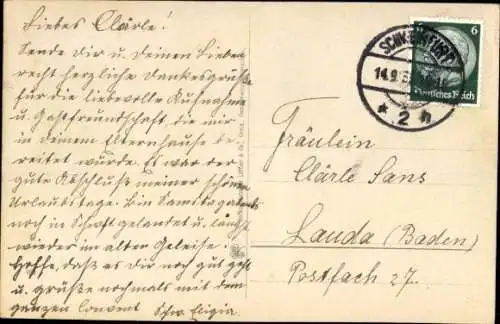 Liebes Clärle!
Sende dir u. deinen Lieben
recht herzliche Dankesgrüße
für die liebevolle Aufnahme
u. Gastfreundschaft, die mir
in deinem Elternhause be-
reitet wurde. Es war der
gute Abschluß meiner schönen
Urlaubstage. Bin Samstagabend
noch in Schaft gelandet u. längst
wieder im alten Geleise.
Hoffe, daß es dir noch gut geht
u. grüße nochmals mit dem
ganzen Convent Schw. Eligia
SCHWEINFURT
14.9.
* 2 h
6
Deutsches Reich
Fräulein
Clärle Sans
Lauda (Baden)
Postfach 27.